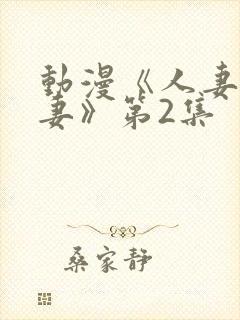 動漫《人妻
妻》第2集
桑家静